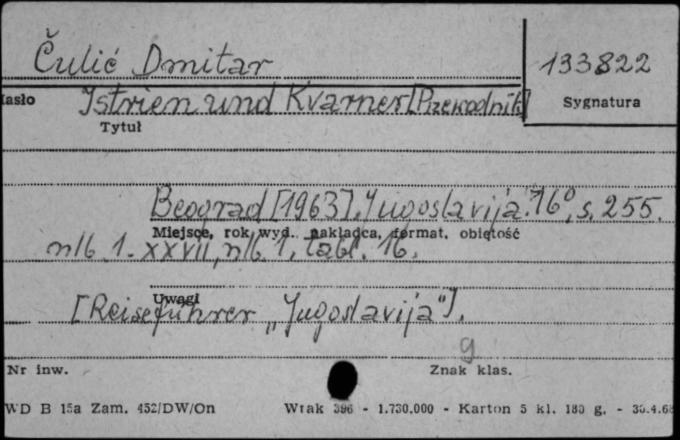 Čulić Dmitar
133822
Hasło
Istrien und Kvarner [Przewodnik]
Sygnatura
Tytuł
Beograd [1963]. Jugoslavija. 16°, s. 255.
Miejsce, rok wyd. nakładca, format, objętość
nlb. 1. XXVII, nlb. 1, tabl. 16.
Uwagi
[Reiseführer „Jugoslavija"].
g
Nr inw.
Znak klas.
WD B 15a Zam. 452/DW/On Wrak 396 - 1.730.000 - Karton 5 kl. 180 g. - 30.4.68